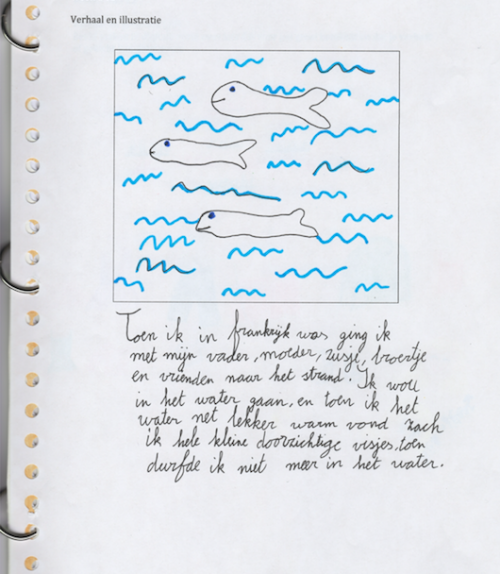 Verhaal en illustratie
Toen ik in frankrijk was ging ik
met mijn vader, moeder, zusje, broertje
en vrienden naar het strand. Ik wou
in het water gaan, en toen ik het
water net lekker warm vond zach
ik hele kleine doorzichtige visjes, toen
durfde ik niet meer in het water.